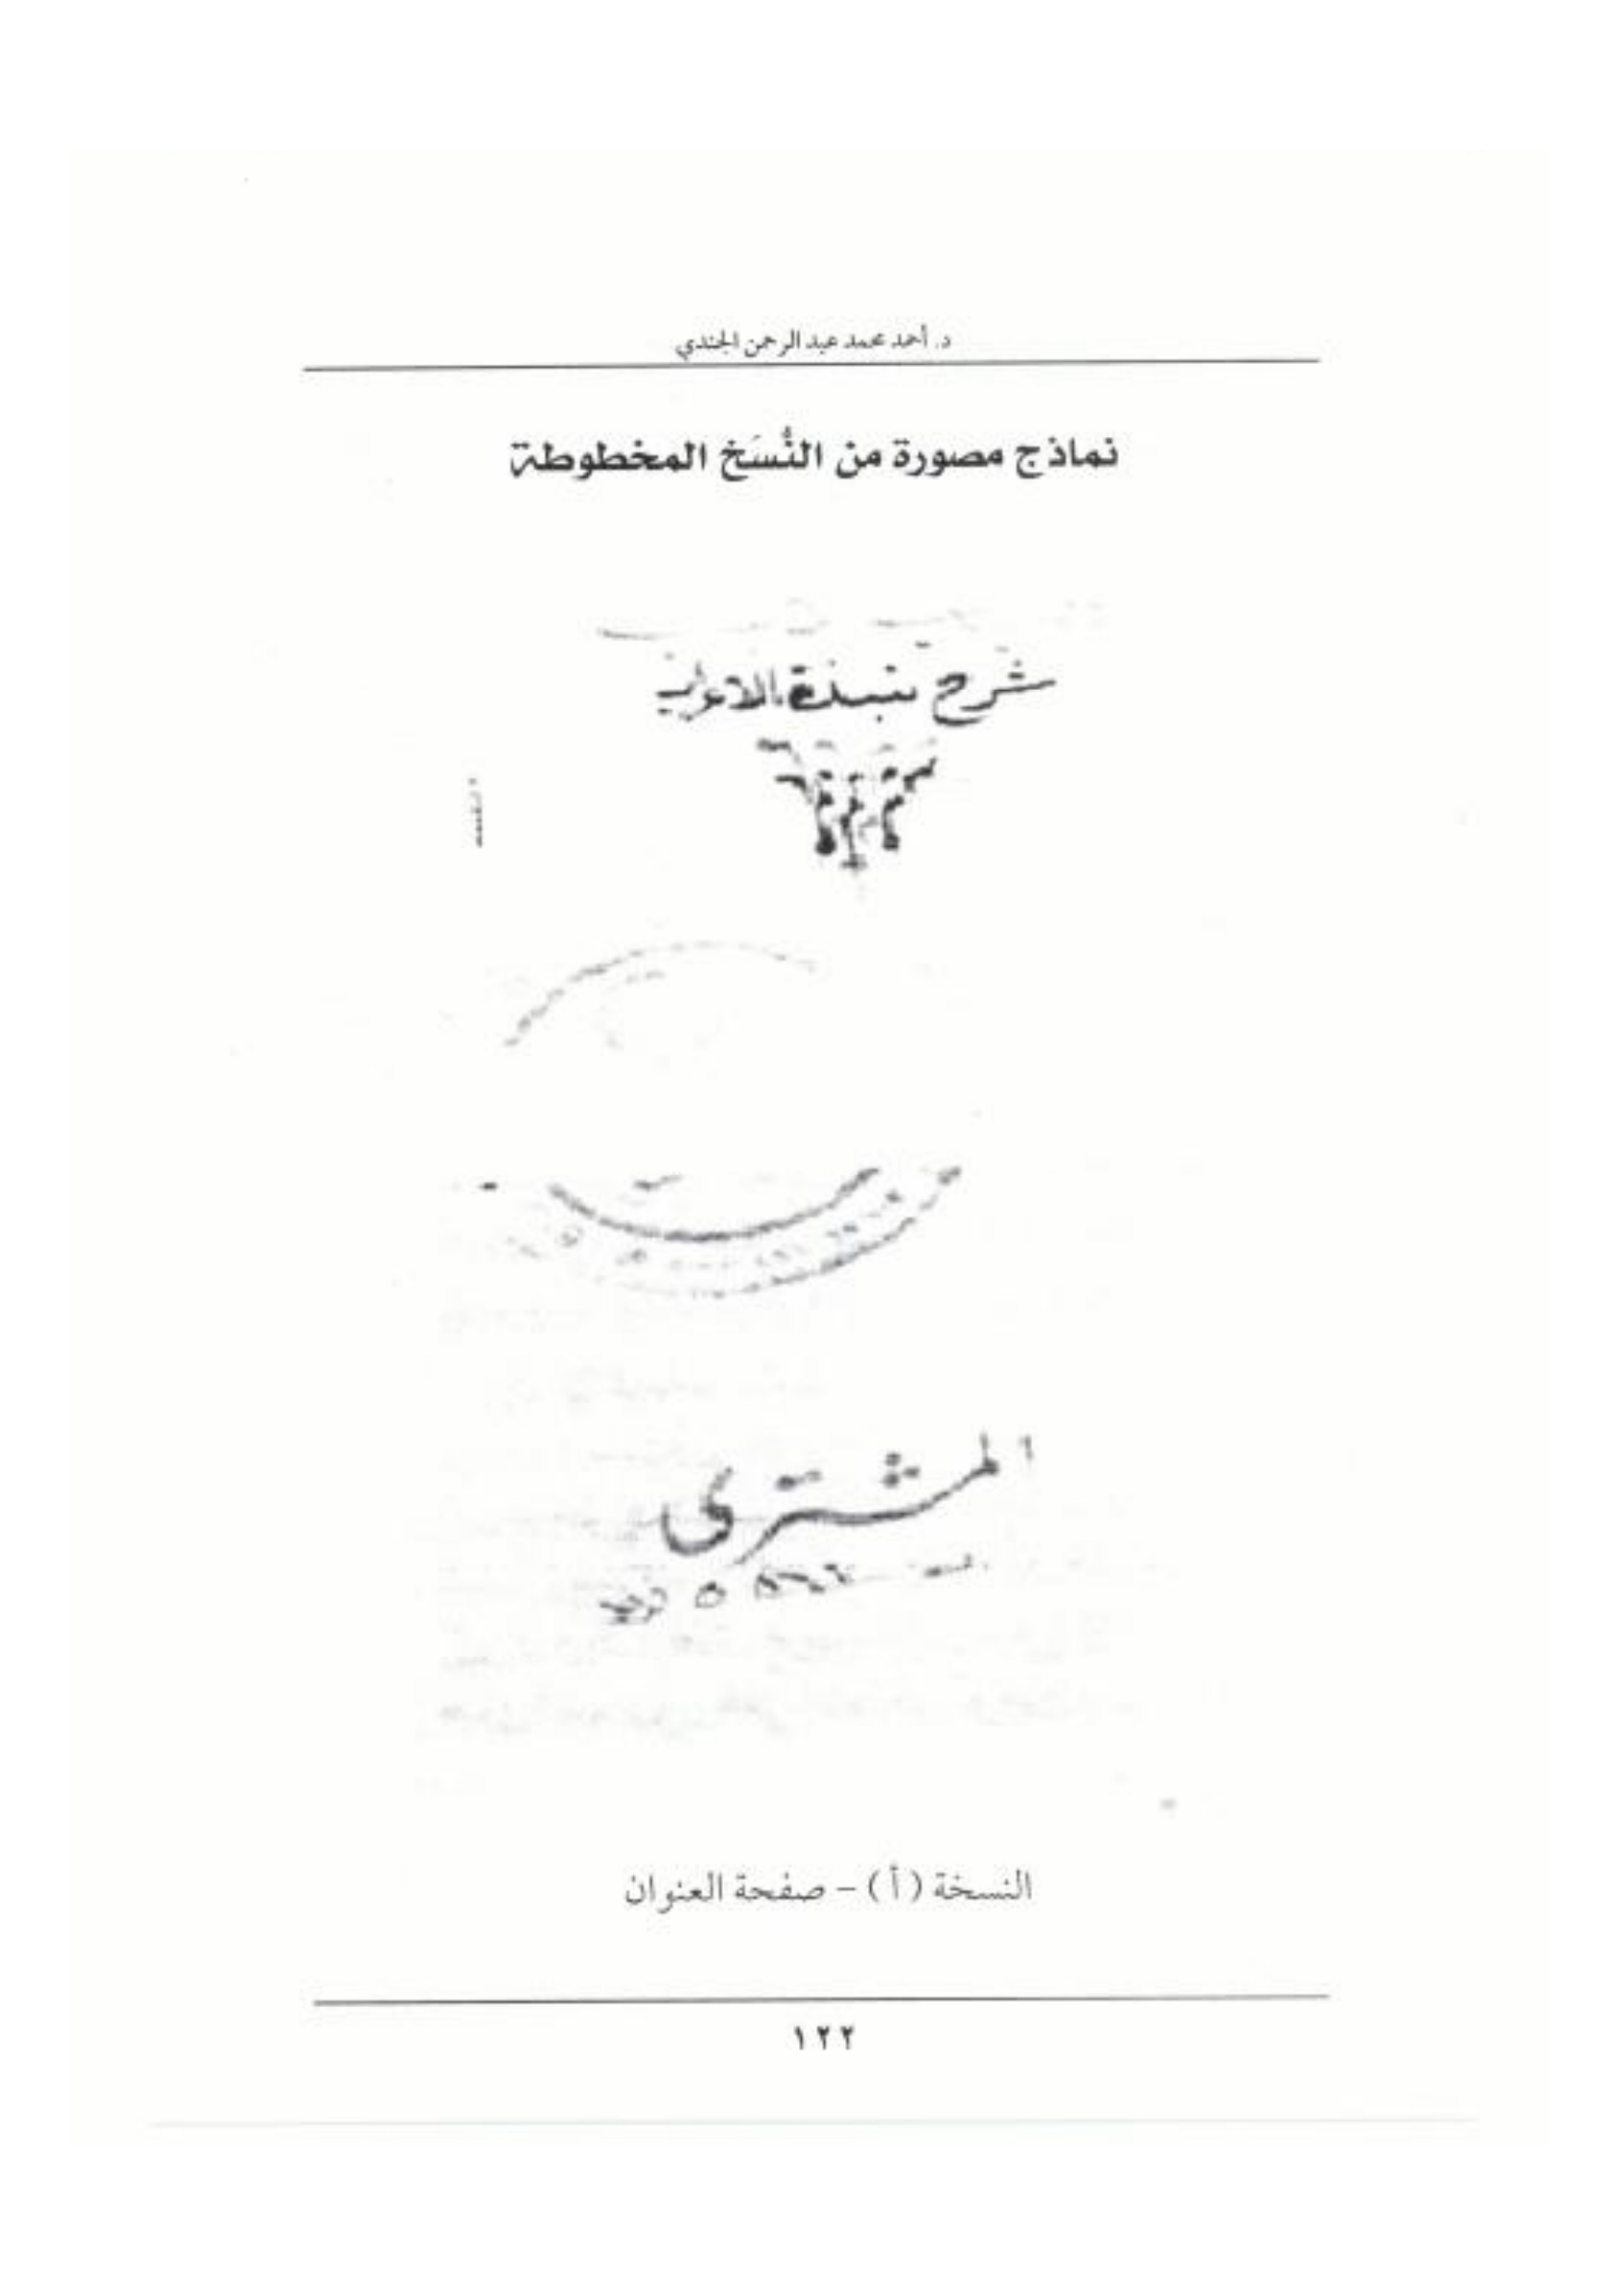 د. أحمد محمد عبد الرحمن الجندي
نماذج مصورة من النُّسَخ المخطوطة
شرح نبذة الاعراب
المشترى
النسخة (أ) – صفحة العنوان
١٢٢